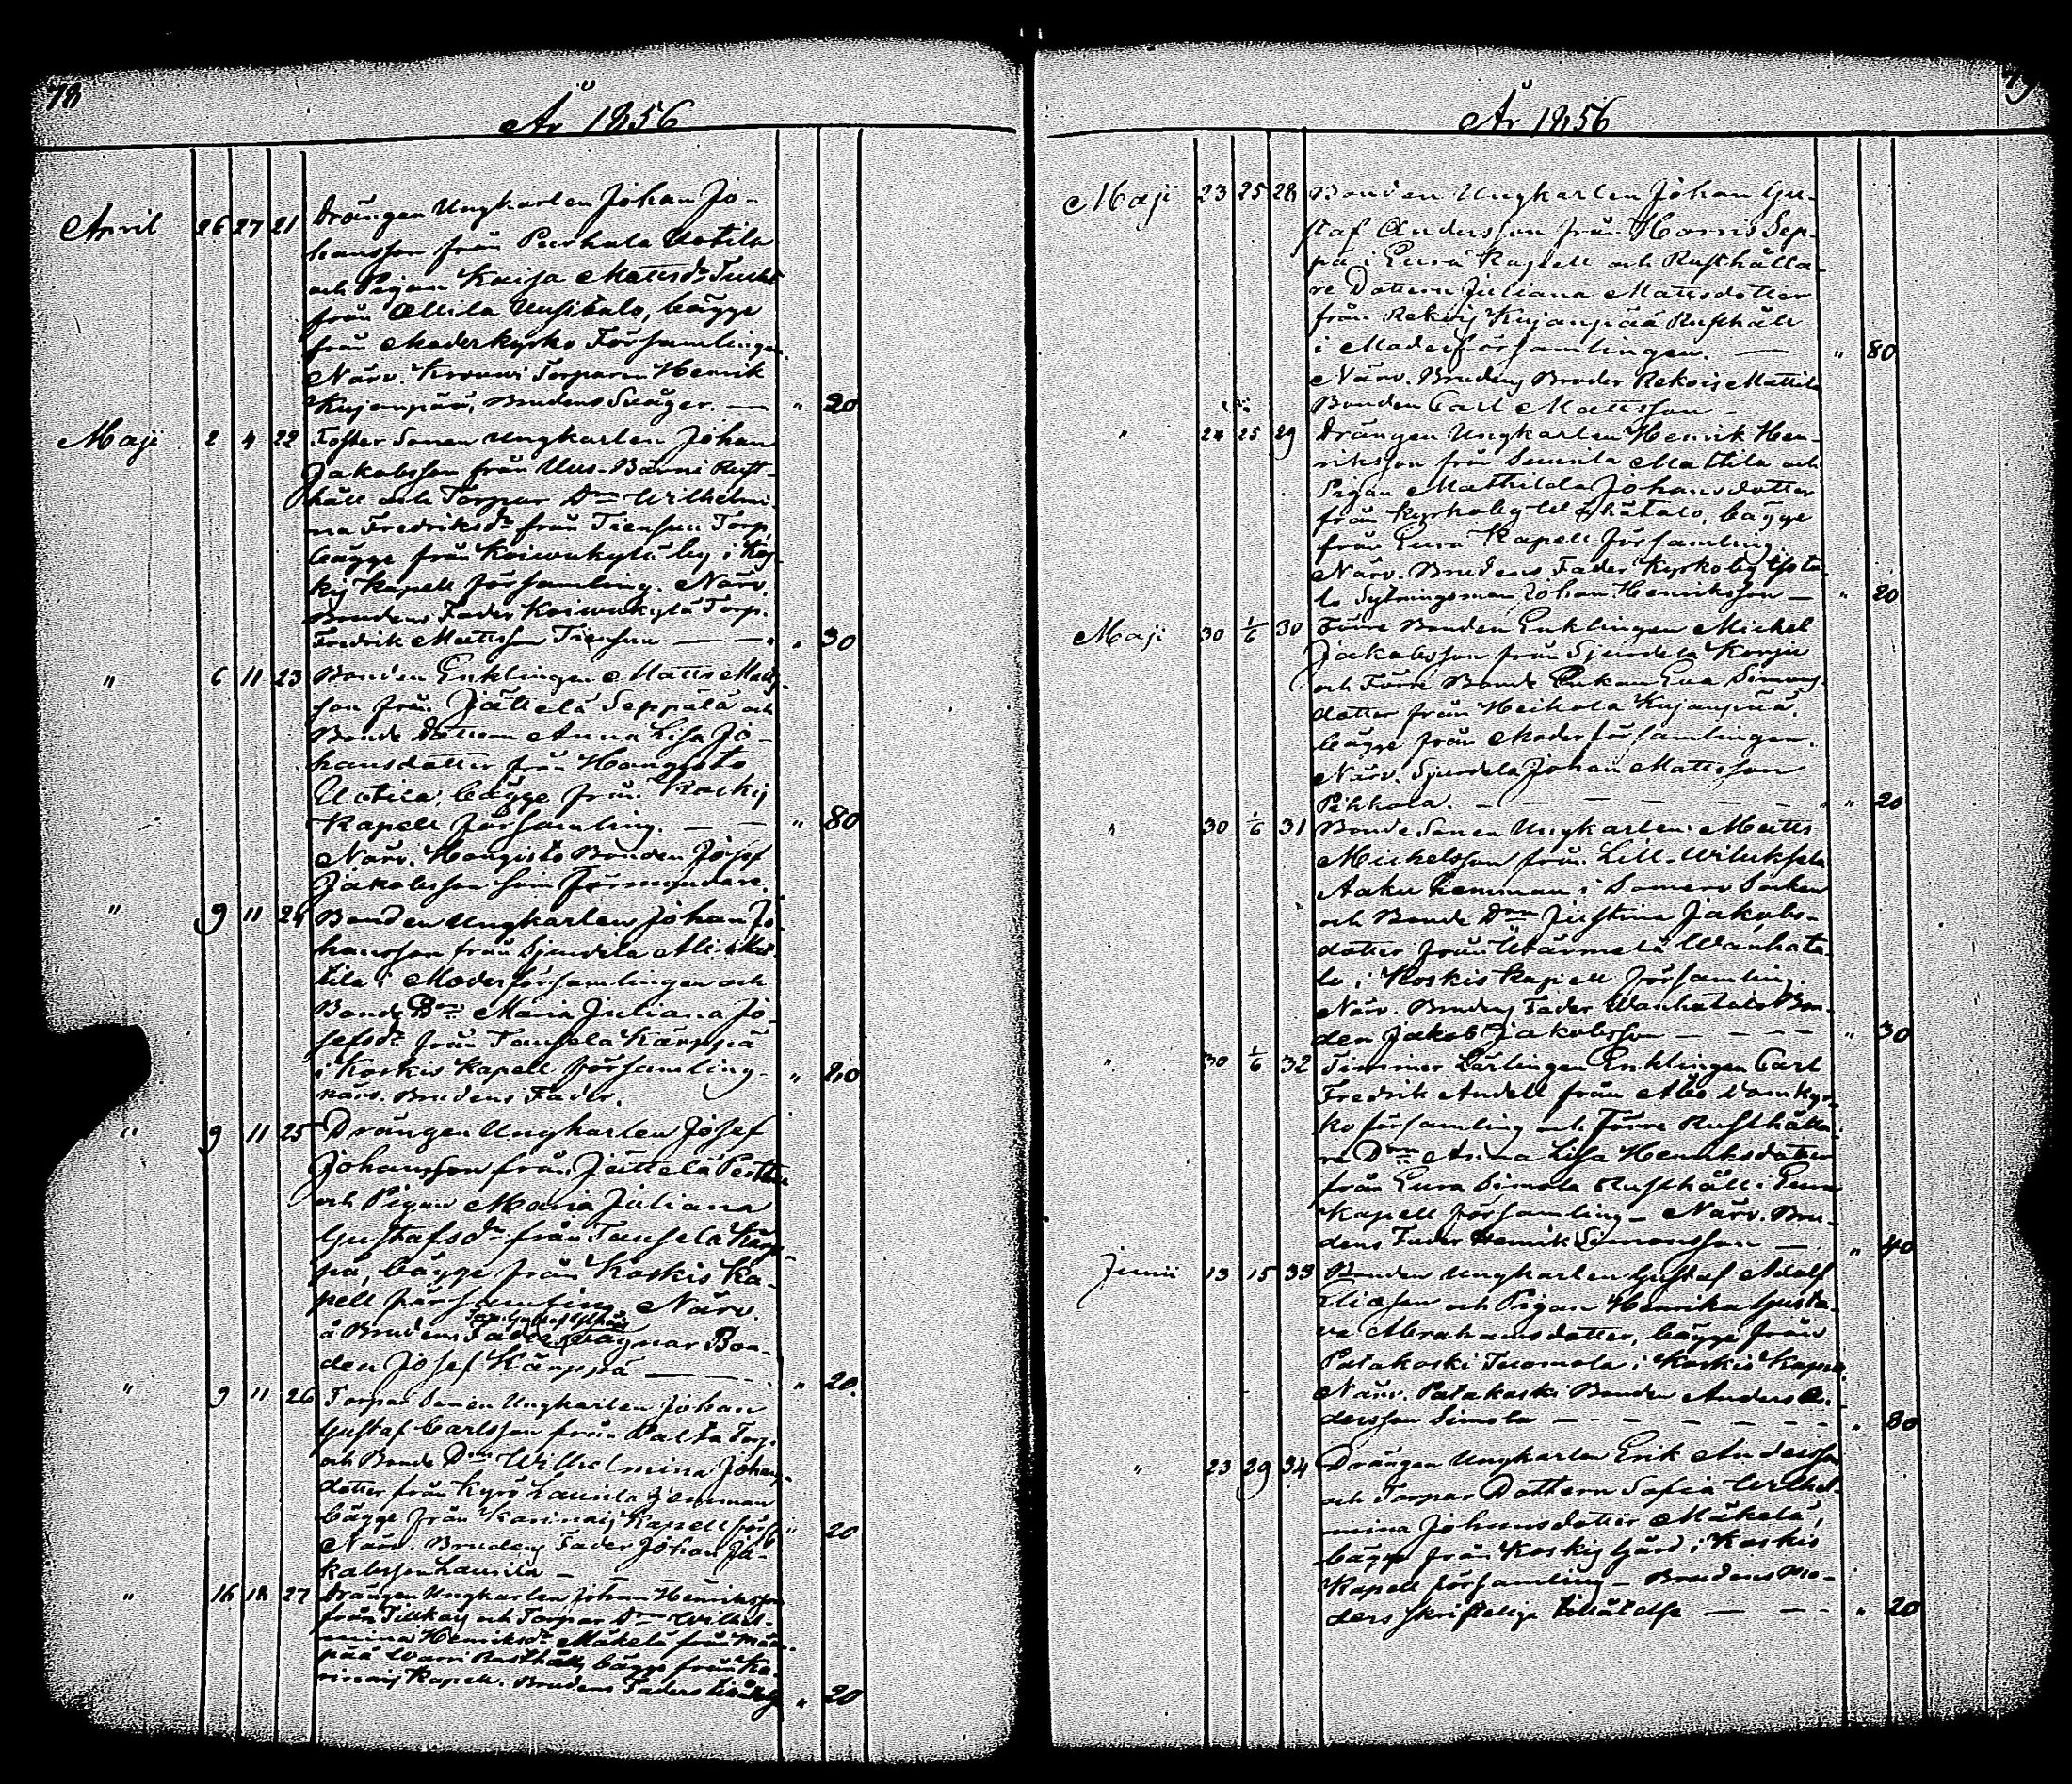 78
År 1856
April 26 27 21 Drängen Ungkarlen Johan Jo-
hansson från Purhala Uotila
och Pigan Kaisa Mattsdr
från Ollila Uusitalo, bägge
från Moderkyrko Församlingen.
Närv. Krouvi Torparen Henrik
Kujanpää, Brudens Svåger. — " 20
Maji 2 4 22 Foster Sonen Ungkarlen Johan
Jakobsson från Uus-Bärni Rust-
håll och Torpar Drn Wilhelmi-
na Fredriksdr från Tiensuu Torp,
bägge från Koiwukylä by i Kos-
kis Kapell församling. Närv.
Brudens Fader Koiwukylä Torp.
Fredrik Mattsson Tiensuu — — " 30
" 6 11 23 Bonden Enklingen Matts Matts-
son från Jättelä Seppälä och
Bonde Dottern Anna Lisa Jo-
hansdotter från Hongisto
Uotila, bägge från Koskis
Kapell församling. — — " 80
Närv. Hongisto Bonden Josef
Jakobsson som Förmyndare.
" 9 11 24 Bonden Ungkarlen Johan Jo-
hansson från Sjundela Ali-Mat-
tila i Moderförsamlingen och
Bonde Drn Maria Juliana Jo-
sefsdr från Tausela Kärppä
i Koskis Kapell församling. " 80
närv. Brudens Fader.
" 9 11 25 Drängen Ungkarlen Josef
Johansson från Jättelä Perttu
och Pigan Maria Juliana
Gustafsdr från Tausela Kärp-
pä, bägge från Koskis Ka-
pell församling. Närv.
å Brudens Faders vägnar Bon-
den Josef Kärppä — — " 20
" 9 11 26 Torpar Sonen Ungkarlen Johan
Gustaf Carlsson från Palta Torp
och Bonde Drn Wilhelmina Johans-
dotter från Kyrö Laurila hemman
bägge från Karinais Kapell förs. " 20
Närv. Brudens Fader Johan Ja-
kobsson Laurila —
" 16 18 27 Drängen Ungkarlen Johan Henriksson
från Tillkais och Torpar Drn Wilhel-
mina Henriksdr Mäkelä från Mäen-
pää Warri Rusthåll, bägge från Ka-
rinais Kapell. Brudens Faders " 20
År 1856
Maji 23 25 28 Bonden Ungkarlen Johan Gu-
staf Andersson från Horris Sep-
pä i Eura Kapell och Rusthålla-
re Dottern Juliana Mattsdotter
från Rekois Kujanpää Rusthåll
i Moderförsamlingen. — " 80
Närv. Brudens Broder Rekois Mattila
Bonden Carl Mattsson —
" 24 25 29 Drängen Ungkarlen Henrik Hen-
riksson från Suurila Mattila och
Pigan Mathilda Johansdotter
från Kyrkoby Ylhätalo, bägge
från Eura Kapell församling.
Närv. Brudens Fader Kyrkoby
lo Sytningsman Johan Henriksson — " 20
Maji 30 1/6 30 Förre Bonden Enklingen Michel
Jakobsson från Sjundela Konju
och Förre Bonde Enkan Eva Simons-
dotter från Heikola Kujanpää,
bägge från Moderförsamlingen.
Närv. Sjundela Johan Mattsson
Pikkola. — — — — — " 20
" 30 1/6 31 Bonde Sonen Ungkarlen Matts
Michelsson från Lill-Wiluksela
Aaku hemman i Somero Socken
och Bonde Drn Justina Jakobs-
dotter från Wärmelä Wanhata-
lo i Koskis Kapell församling.
Närv. Brudens Fader Wanhatalo Bon-
den Jakob Jakobsson — — — " 30
" 30 1/6 32 Timmer Lärlingen Enklingen Carl
Fredrik Andell från Åbo Domkyr-
ko församling och Förre Rusthålla-
re Drn Anna Lisa Henriksdotter
från Eura Simola Rusthåll i Eura
Kapell församling — Närv. Bru-
dens Fader Henrik Simonsson — " 40
Junii 13 15 33 Bonden Ungkarlen Gustaf Adolf
Eliasson och Pigan Henrika Gusta-
va Abrahamsdotter, bägge från
Patakoski Tuomola i Koskis Kapell.
Närv. Patakoski Bonden Anders An-
dersson Simola — — — — " 80
" 23 29 34 Drängen Ungkarlen Erik Andersson
och Torpar Dottern Sofia Wilhel-
mina Johansdotter Mäkelä,
bägge från Koskis Gård i Koskis
Kapell församling — Brudens Mo-
ders skriftelige tillåtelse — — " 20